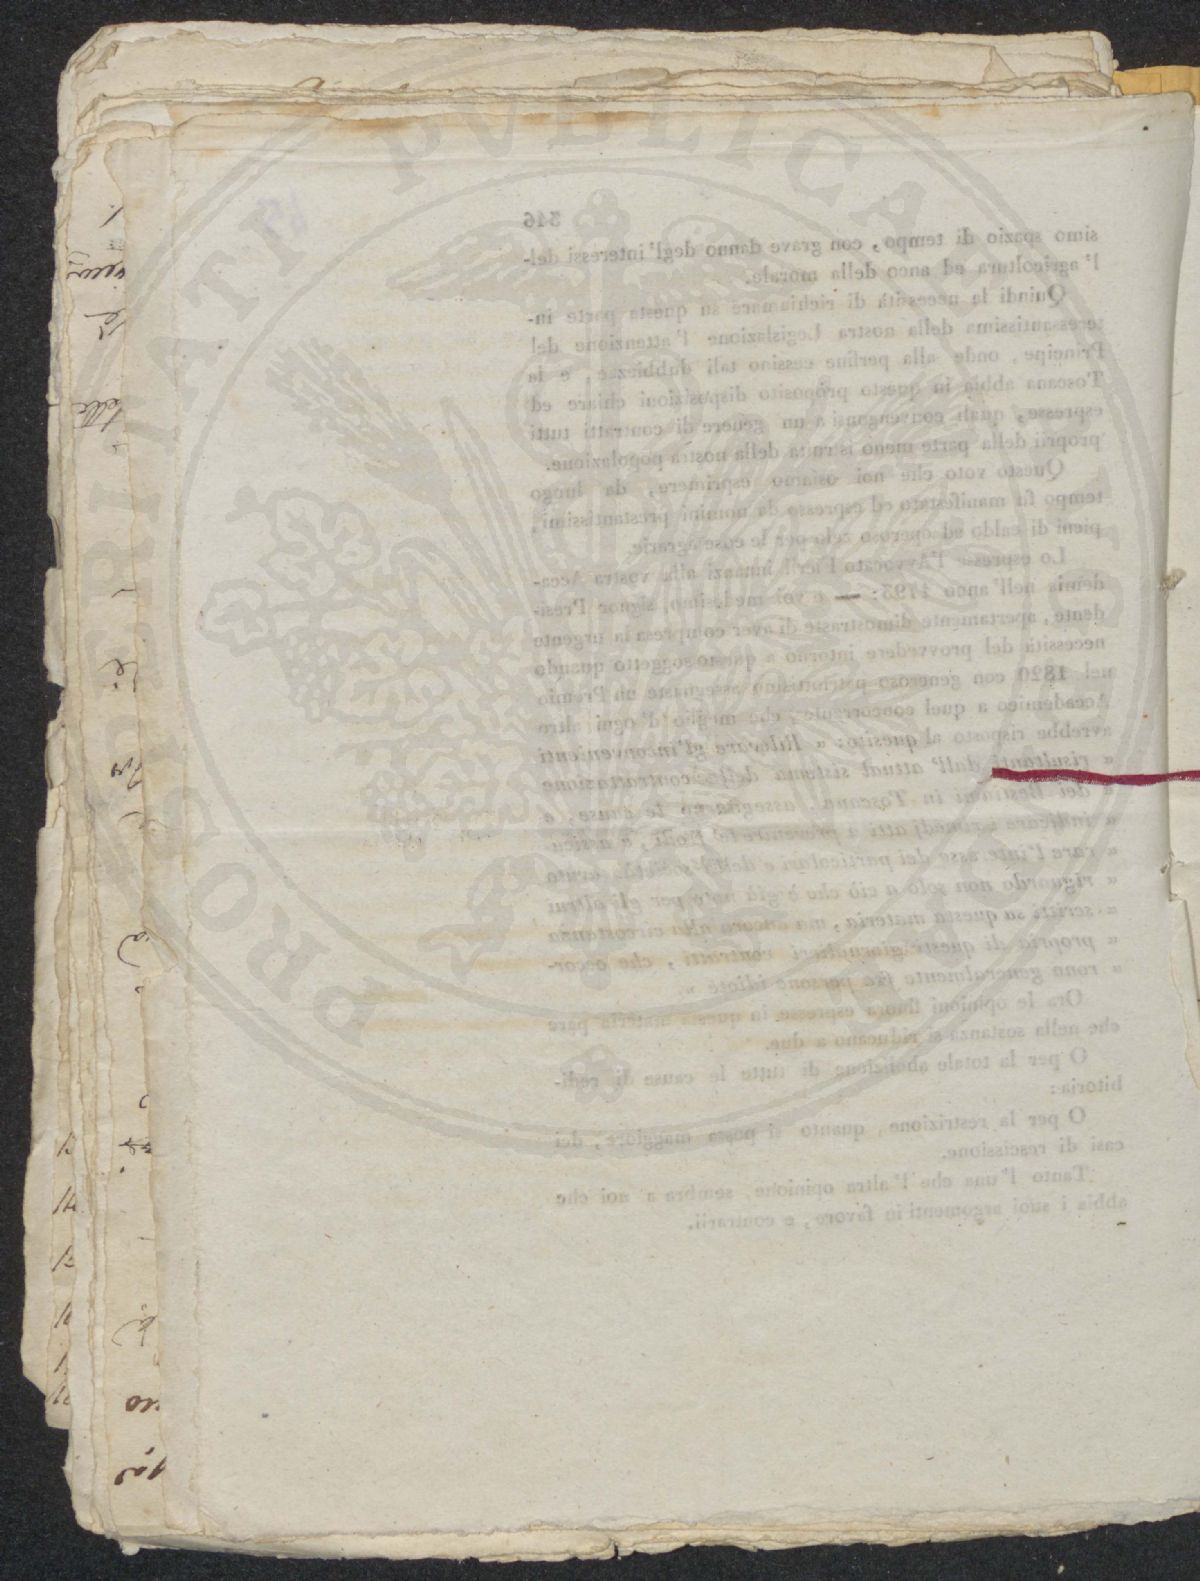 346
simo spazio di tempo, con grave danno degl' interessi del-
l' agricoltura ed anco della morale.
Quindi la necessità di richiamare su questa parte in-
teressantissima della nostra Legislazione l' attenzione del
Principe, onde alla perfine cessino tali dubbiezze, e la
Toscana abbia in questo proposito disposizioni chiare ed
espresse, quali convengonsi a un genere di contratti tutti
proprii della parte meno istruita della nostra popolazione.
Questo voto che noi osiamo esprimere, da lungo
tempo fu manifestato ed espresso da uomini prestantissimi,
pieni di caldo ed operoso zelo per le cose agrarie.
Lo espresse l' Avvocato Pieri innanzi alla vostra Acca-
demia nell' anno 1793: — e voi medesimo, signor Presi-
dente, apertamente dimostraste di aver compresa la urgente
necessità del provvedere intorno a questo soggetto quando
nel 1820 con generoso patriottismo assegnaste un Premio
Accademico a quel concorrente, che meglio d' ogni altro
avrebbe risposto al quesito: « Rilevare gl' inconvenienti
« risultanti dall' attual sistema della contrattazione
« dei Bestiami in Toscana, assegnarne le cause, e
« indicare i rimedj atti a prevenire le frodi, e assicu-
« rare l' interesse dei particolari e della società, avuto
« riguardo non solo a ciò che è già noto per gli altrui
« scritti su questa materia, ma ancora alla circostanza
« propria di questi giornalieri contratti, che occor-
« rono generalmente fra persone idiote ».
Ora le opinioni finora espresse in questa materia pare
che nella sostanza si riducano a due.
O per la totale abolizione di tutte le cause di redi-
bitoria:
O per la restrizione, quanto si possa maggiore, dei
casi di rescissione.
Tanto l' una che l' altra opinione, sembra a noi che
abbia i suoi argomenti in favore, e contrarii.
PROSPERITATI PVBLICAE AVGENDAE